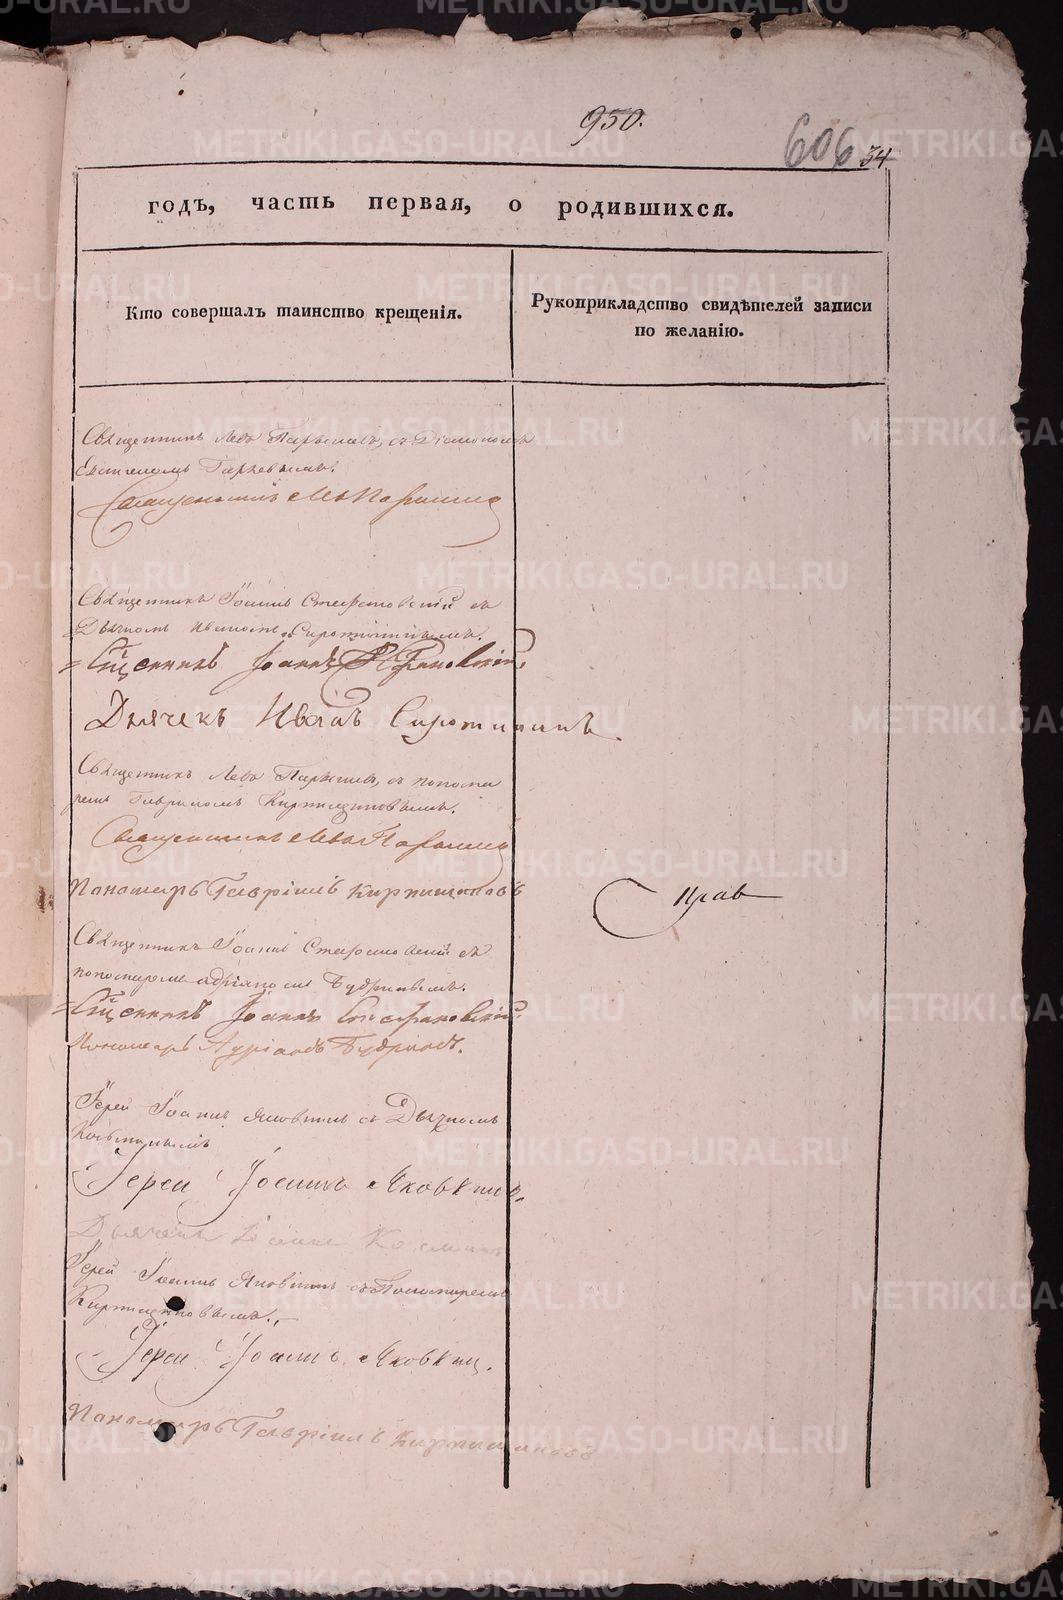 950.
606 34
годъ, часть первая, о родившихся.
Кто совершалъ таинство крещенія.
Рукоприкладство свидѣтелей записи
по желанію.
Священникъ Левъ с Діакономъ
Священникъ Левъ
Священникъ Іоаннъ Стефановскій съ
Дьячкомъ Иваномъ Сиротинымъ.
Сщенникъ Іоаннъ Стефановскій.
Дьячекъ Иванъ Сиротинъ
Священникъ Левъ съ понома
ремъ Гавриломъ Кирпищиковымъ.
Священникъ Левъ
Пономарь Гавріилъ Кирпищиковъ
Справ
Священникъ Іоаннъ Стефановскій съ
пономаремъ Адріяномъ Будринымъ.
Сщенникъ Іоаннъ Стефановскій.
Пономарь Адріанъ Будринъ.
Іерей Іоаннъ Яковкинъ съ Дьячкомъ
Іерей Іоаннъ Яковкинъ.
Дьячекъ
Іерей Іоаннъ Яковкинъ съ Пономаремъ
Кирпищиковымъ.
Іерей Іоаннъ Яковкин.
Пономарь Гавріилъ Кирпищиковъ
METRIKI.GASO-URAL.RU